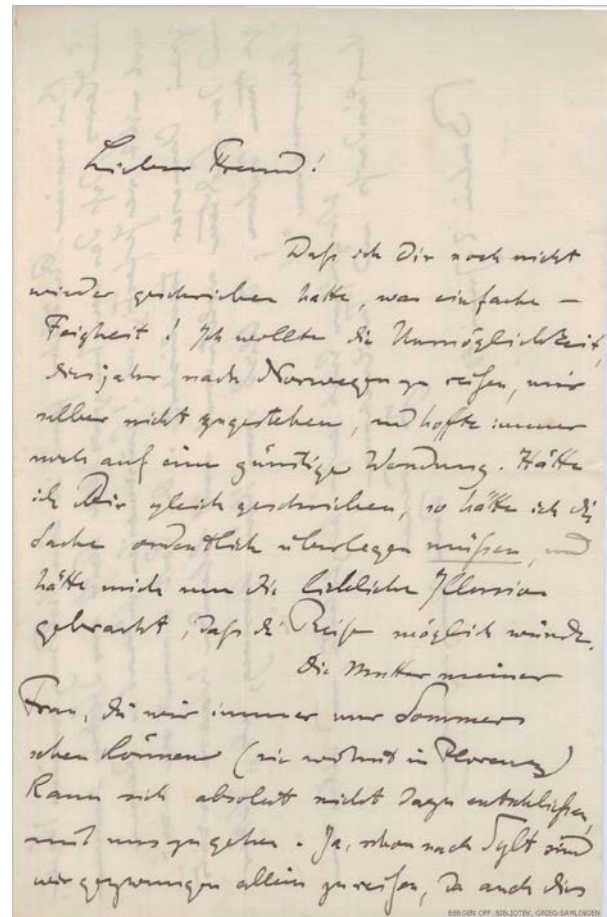 Lieber Freund!
Daß ich Dir noch nicht
wieder geschrieben hatte, war einfache –
Feigheit! Ich wollte die Unmöglichkeit,
dies Jahr nach Norwegen zu reisen, mir
selber nicht zugestehen, und hoffte immer
noch auf eine günstige Wendung. Hätte
ich Dir gleich geschrieben, so hätte ich die
Sache ordentlich überlegen müßen, und
hätte mich um die liebliche Illusion
gebracht, daß die Reise möglich würde.
Die Mutter meiner
Frau, die wir immer nur Sommers
sehen können (sie wohnt in Florenz)
kann sich absolut nicht dazu entschließen,
mit uns zu gehen. Ja, schon nach Sylt sind
wir gezwungen allein zu reisen, da auch dies
BERGEN OFF. BIBLIOTEK, GRIEG-SAMLINGEN